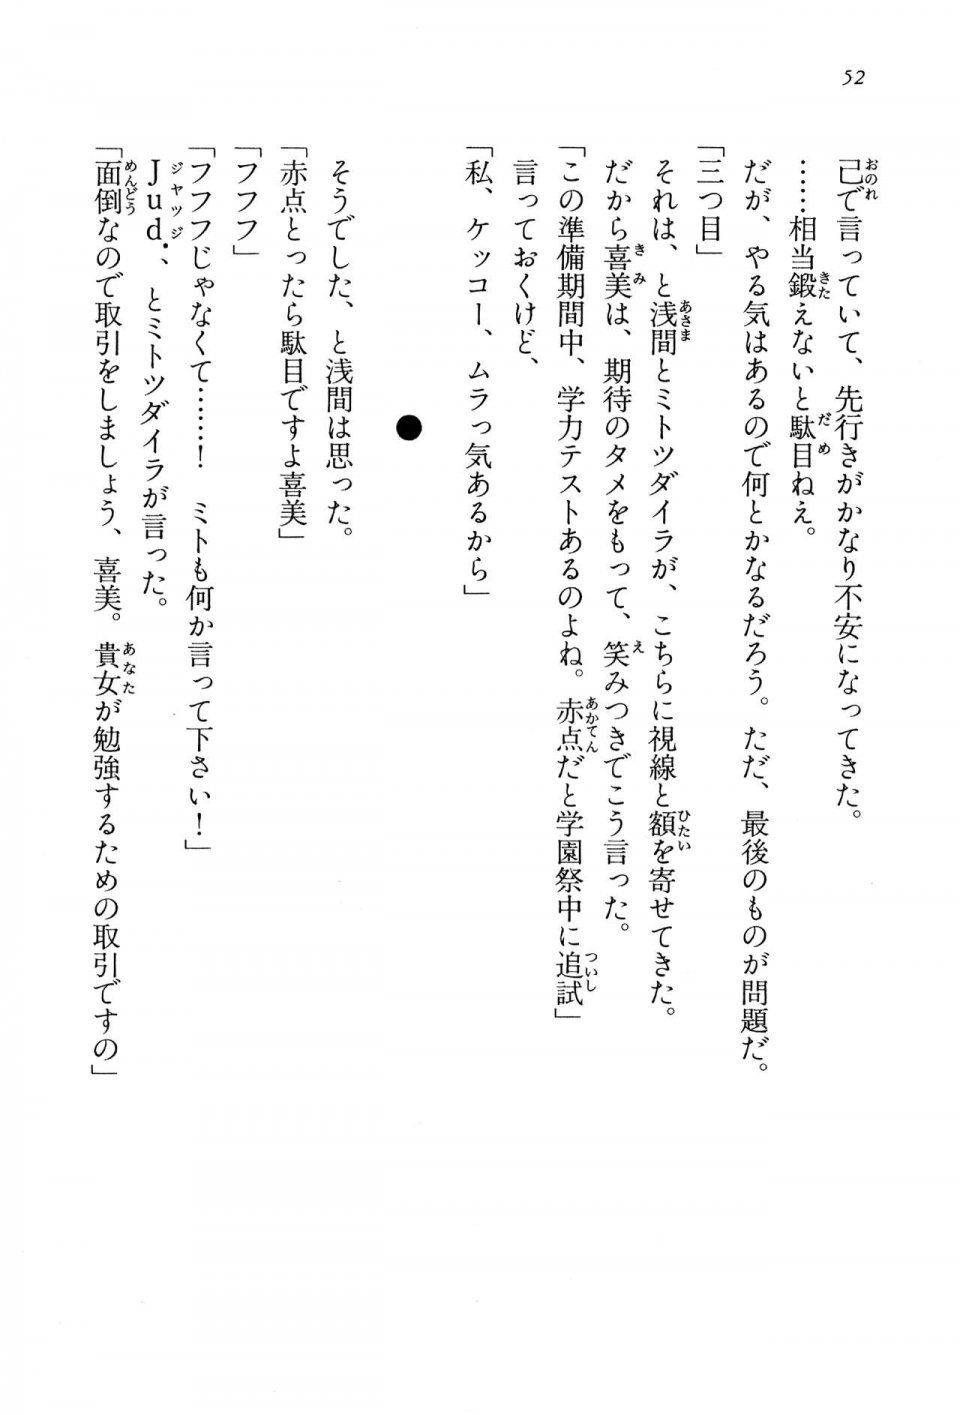 52
己で言っていて、先行きがかなり不安になってきた。
……相当鍛えないと駄目ねえ。
だが、やる気はあるので何とかなるだろう。ただ、最後のものが問題だ。
「三つ目」
それは、と浅間とミトツダイラが、こちらに視線と額を寄せてきた。
だから喜美は、期待のタメをもって、笑みつきでこう言った。
「この準備期間中、学力テストあるのよね。赤点だと学園祭中に追試」
言っておくけど、
「私、ケッコー、ムラっ気あるから」
●
そうでした、と浅間は思った。
「赤点とったら駄目ですよ喜美」
「フフフ」
「フフフじゃなくて……！　ミトも何か言って下さい！」
Jud.、とミトツダイラが言った。
「面倒なので取引をしましょう、喜美。貴女が勉強するための取引ですの」